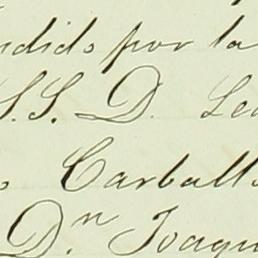 ndido por la
S.S. D. Lea
Carballo
Dn. Joaqu